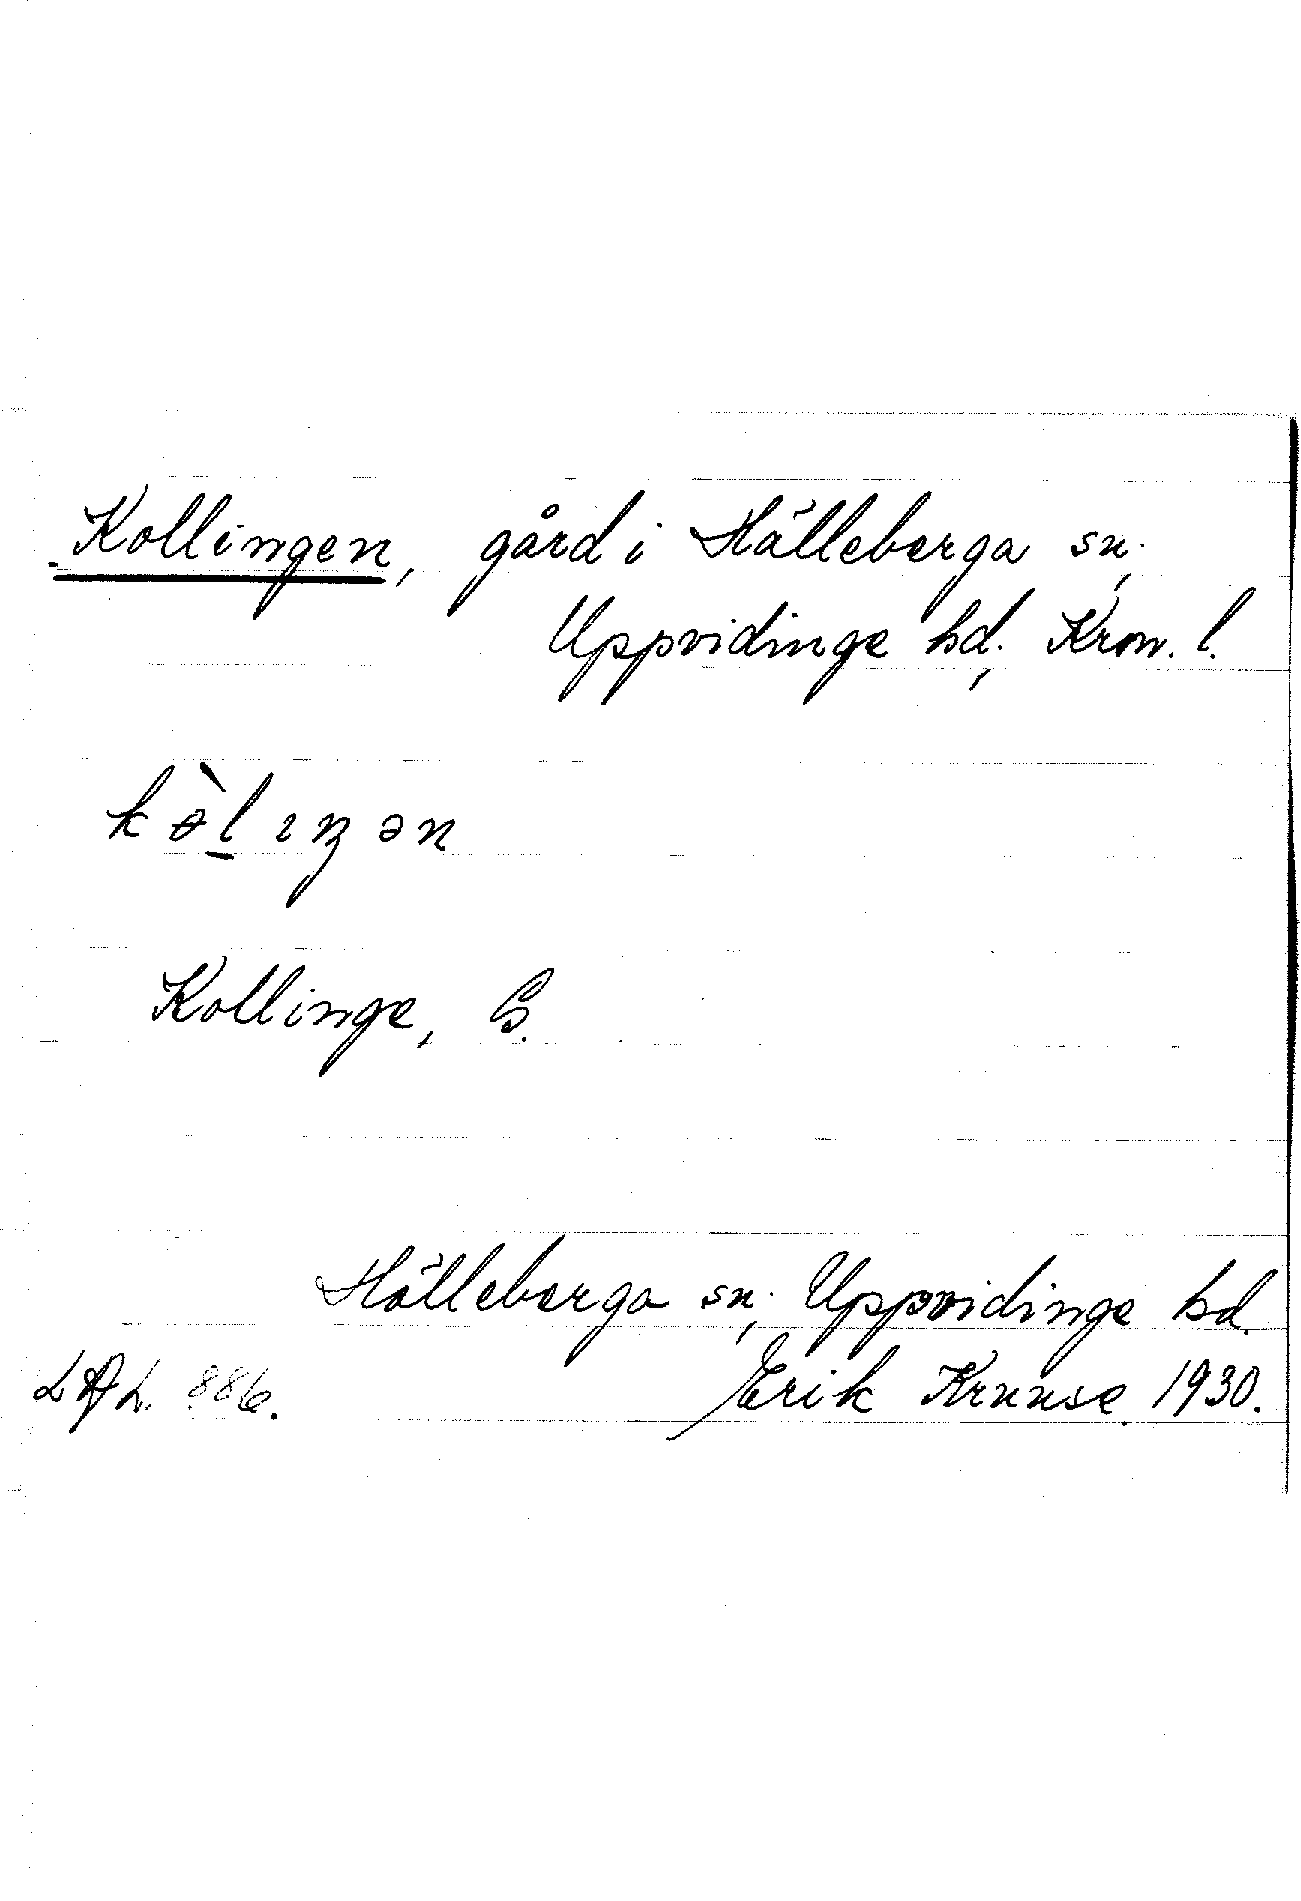 Kollingen, gård i Hälleberga sn.,
Uppvidinge hd., Kron. l.
kòlıŋən
Kollinge, G.
Hälleberga sn., Uppvidinge hd.
LAL. 886. Erik Kruuse 1930.